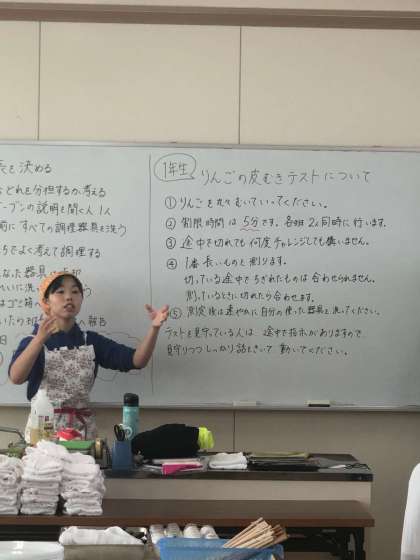 長を決める
などれを分担するか考える
ーブンの説明を聞く人 1人
前にすべての調理器具を洗う
ちでよく考えて調理する
1年生
りんごの皮むきテストについて
① りんごを丸々むいていってください。
② 制限時間は5分です。各班2人同時に行います。
③ 途中で切れても何度チャレンジしても構いません。
④ 1番長いものを測ります。
切っている途中でちぎれたものは合わせられません。
測っているときに切れたら合わせます。
⑤ 測定後は速やかに自分の使った器具を洗ってください。
テストを見守っている人は、途中で指示がありますので、
見守りつつしっかり話をきいて動いてください。